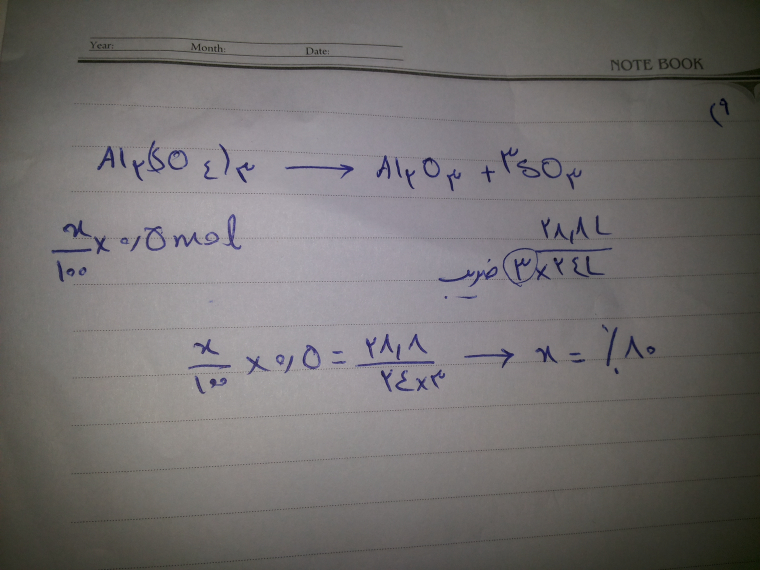 Year: Month: Date:
NOTE BOOK
(۹
Al۲(SO٤)۳ → Al۲O۳ + ۳SO۳
x/۱۰۰ × ۰,۵ mol
۲۸,۸ L / ۳×۲٤L ضریب
x/۱۰۰ × ۰,۵ = ۲۸,۸/۲٤×۳ → x = ٪۸۰